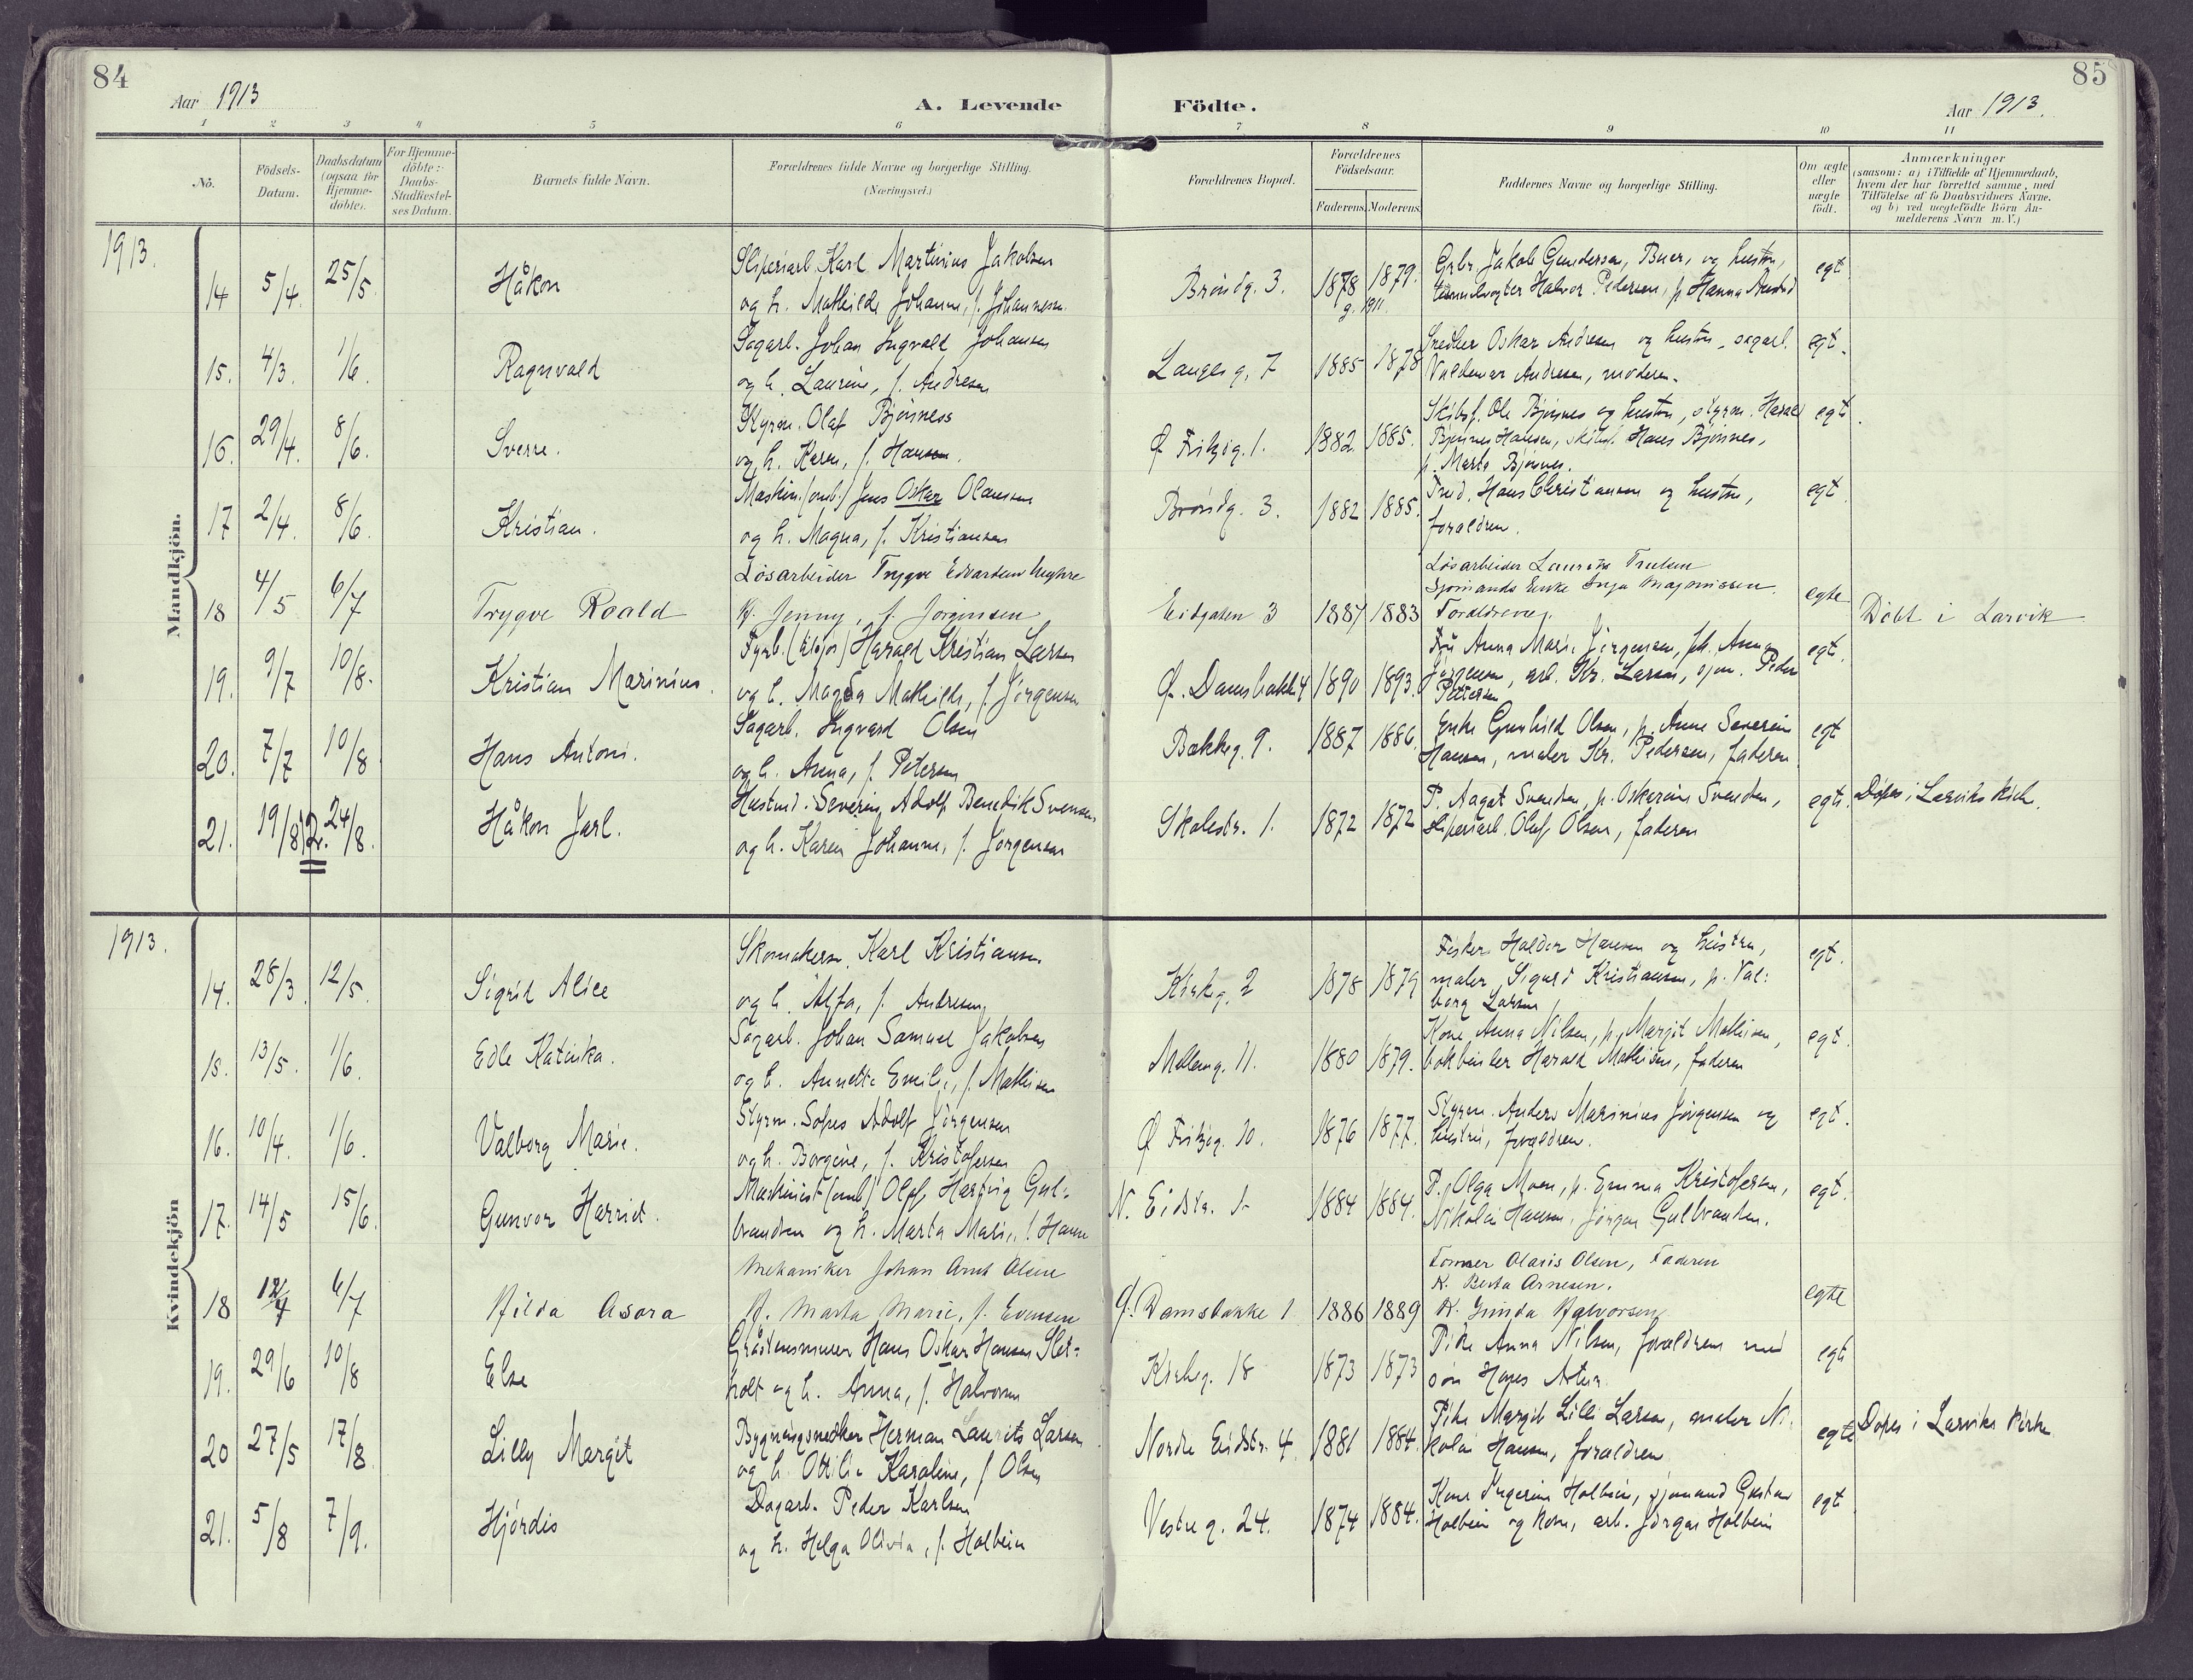 84
Aar 1913
A. Levende
Födte.
Aar 1913.
85
1 2 3 4 5 6 7 8 9 10 11
No.
Födsels-
Datum.
Daabsdatum
(ogsaa for
Hjemme-
döbte).
For Hjemme-
döbte:
Daabs-
Stadfestel-
ses Datum.
Barnets fulde Navn.
Forældrenes fulde Navne og borgerlige Stilling.
(Næringsvei.)
Forældrenes Bopæl.
Forældrenes
Födselsaar.
Faderens. Moderens.
Faddernes Navne og borgerlige Stilling.
Om ægte
eller
uægte
födt.
Anmærkninger
(saasom: a) i Tilfælde af Hjemmedaab,
hvem der har forrettet samme, med
Tilföielse af to Daabsvidners Navne.
og b) ved uægtefödte Börn An-
melderens Navn m.V.)
1913.
Mandkjön.
14 5/4. 25/5 Håkon
Sliperiarb. Karl Martinius Jakobsen
og h. Mathilde Johanne, f. Johannesen
Bröndg. 3. 1878 1879.
g. 1911.
Grbr. Jakob Gundersen, Buer, og hustru,
Halvor Pedersen, p. Hanna
egt
15. 4/3. 1/6. Ragnvald
Sagarb. Johan Ingvald Johansen
og h. Laurine, f. Andresen
Langes g. 7 1885 1878
Snedker Oskar Andresen og hustru, sagarb.
Valdemar Andresen, moderen.
egt.
16. 29/4. 8/6. Sverre.
Styrm. Olaf Bjönness
og h. Karen, f. Hansen.
Ø Fritzög. 1. 1882. 1885.
Skibsf. Ole Bjönnes og hustru, styrm. Harald
Bjönnes Hansen, skibsf. Hans Bjönnes,
p. Marta Bjönnes.
egt.
17 2/4. 8/6. Kristian.
Maskin. (omb.) Jens Oskar Olaussen
og h. Magna, f. Kristiansen
Bröndg. 3. 1882 1885.
Hans Christiansen og hustru,
foraldren.
egt
18 4/5 6/7 Trygve Roald
Lösarbeider Trygve Edvardsen
H. Jenny, f. Jörgensen
Eidgaten 3 1887 1883
Lösarbeider Laurits Trulsen
Sjömands Enke Inga Magnussen.
Foraldrene.
egte
Döbt i Larvik
19. 9/7 10/8. Kristian Marinius.
Fyrb. (tilsjös) Harald Kristian Larsen
og h. Magda Mathilde, f. Jörgensen
Ø. Damsbakk. 4 1890 1893.
Fru Anna Marie Jörgensen, frk. Anna
Jörgensen, arb. Kr. Larsen, sjöm. Peder
Pettersen
egt.
20. 7/7 10/8 Hans Antoni.
Sagarb. Ingvard Olsen
og h. Anna, f. Petersen
Bakkeg. 9. 1887 1886.
Enke Gunhild Olsen, p. Anne Severine
Hansen, maler Kr. Pedersen, faderen
egt
21. 19/8 12. 24/8. Håkon Jarl.
Hustmd. Severin Adolf Benedik Svensen
og h. Karen Johanne, f. Jörgensen
Skolestr. 1. 1872 1872
P. Aagot Svendsen, p. Oskarine Svendsen,
sliperiarb. Oluf Olsen, faderen
egte. Döpes i Larviks kirke.
1913.
Kvindekjön
14. 28/3. 12/5. Sigrid Alice
Skomakersv. Karl Kristiansen
og h. Alfa, f. Andresen
Kirkeg. 2 1878 1879
Fisker Haldor Hansen og hustru,
maler Sigurd Kristiansen, p. Val:
borg Larsen
egt.
15. 13/5. 1/6. Edle Katinka.
Sagarb. Johan Samuel Jakobsen
og h. Annette Emilie, f. Mathisen
Mølleng. 11. 1880 1879.
Kone Anna Nilsen, p. Margit Mathisen,
bokbinder Harald Mathisen, faderen
egt.
16. 10/4. 1/6. Valborg Marie.
Styrm. Sofus Adolf Jörgensen
og h. Borgine, f. Kristofersen
Ø Fritzög. 10. 1876 1877.
Styrm. Anders Marinius Jörgensen og
hustru, foraldren.
egt.
17. 14/5 15/6. Gunvor Harriet.
Maskinist (omb) Olaf Hartvig Gul-
brandsen og h. Marta Marie, f. Hansen
N. Eidstr. 1 1884 1884.
P. Olga Moen, p. Emma Kristofersen,
Nikolai Hansen, Jörgen Gulbrandsen.
egt.
18 12/4 6/7 Hilda Asora
Mekaniker Johan Arnt Olsen
H. Marta Marie, f. Evensen
Ø. Damsbakke 1 1886 1889
Tömmer Olaris Olsen, Faderen
K. Berta Arnesen.
K. Gunda Halvorsen
egte
19. 29/6 10/8 Else
Gråstensmurer Hans Oskar Hansen Slet-
holt og h. Anna, f. Halvorsen
Kirkeg. 18 1873 1873
Pike Anna Nilsen, foraldrene med
sön Hans Artur.
egt
20 27/5 17/8. Lilly Margit
Bygningssnedker Herman Laurits Larsen
og h. Ottilie Karoline, f. Olsen
Nordre Eidstr. 4. 1881 1884.
Pike Margit Lilli Larsen, maler Ni-
kolai Hansen, foraldren
egte Döpes i Larviks kirke
21. 5/8 7/9. Hjördis
Dagarb. Peder Karlsen
og h. Helga Olivia, f. Holbein
Vestre g. 24. 1874 1884.
Kone Ingerine Holbein, sjömand Gustav
Holbein og kone, arb. Jörgen Holbein
egt